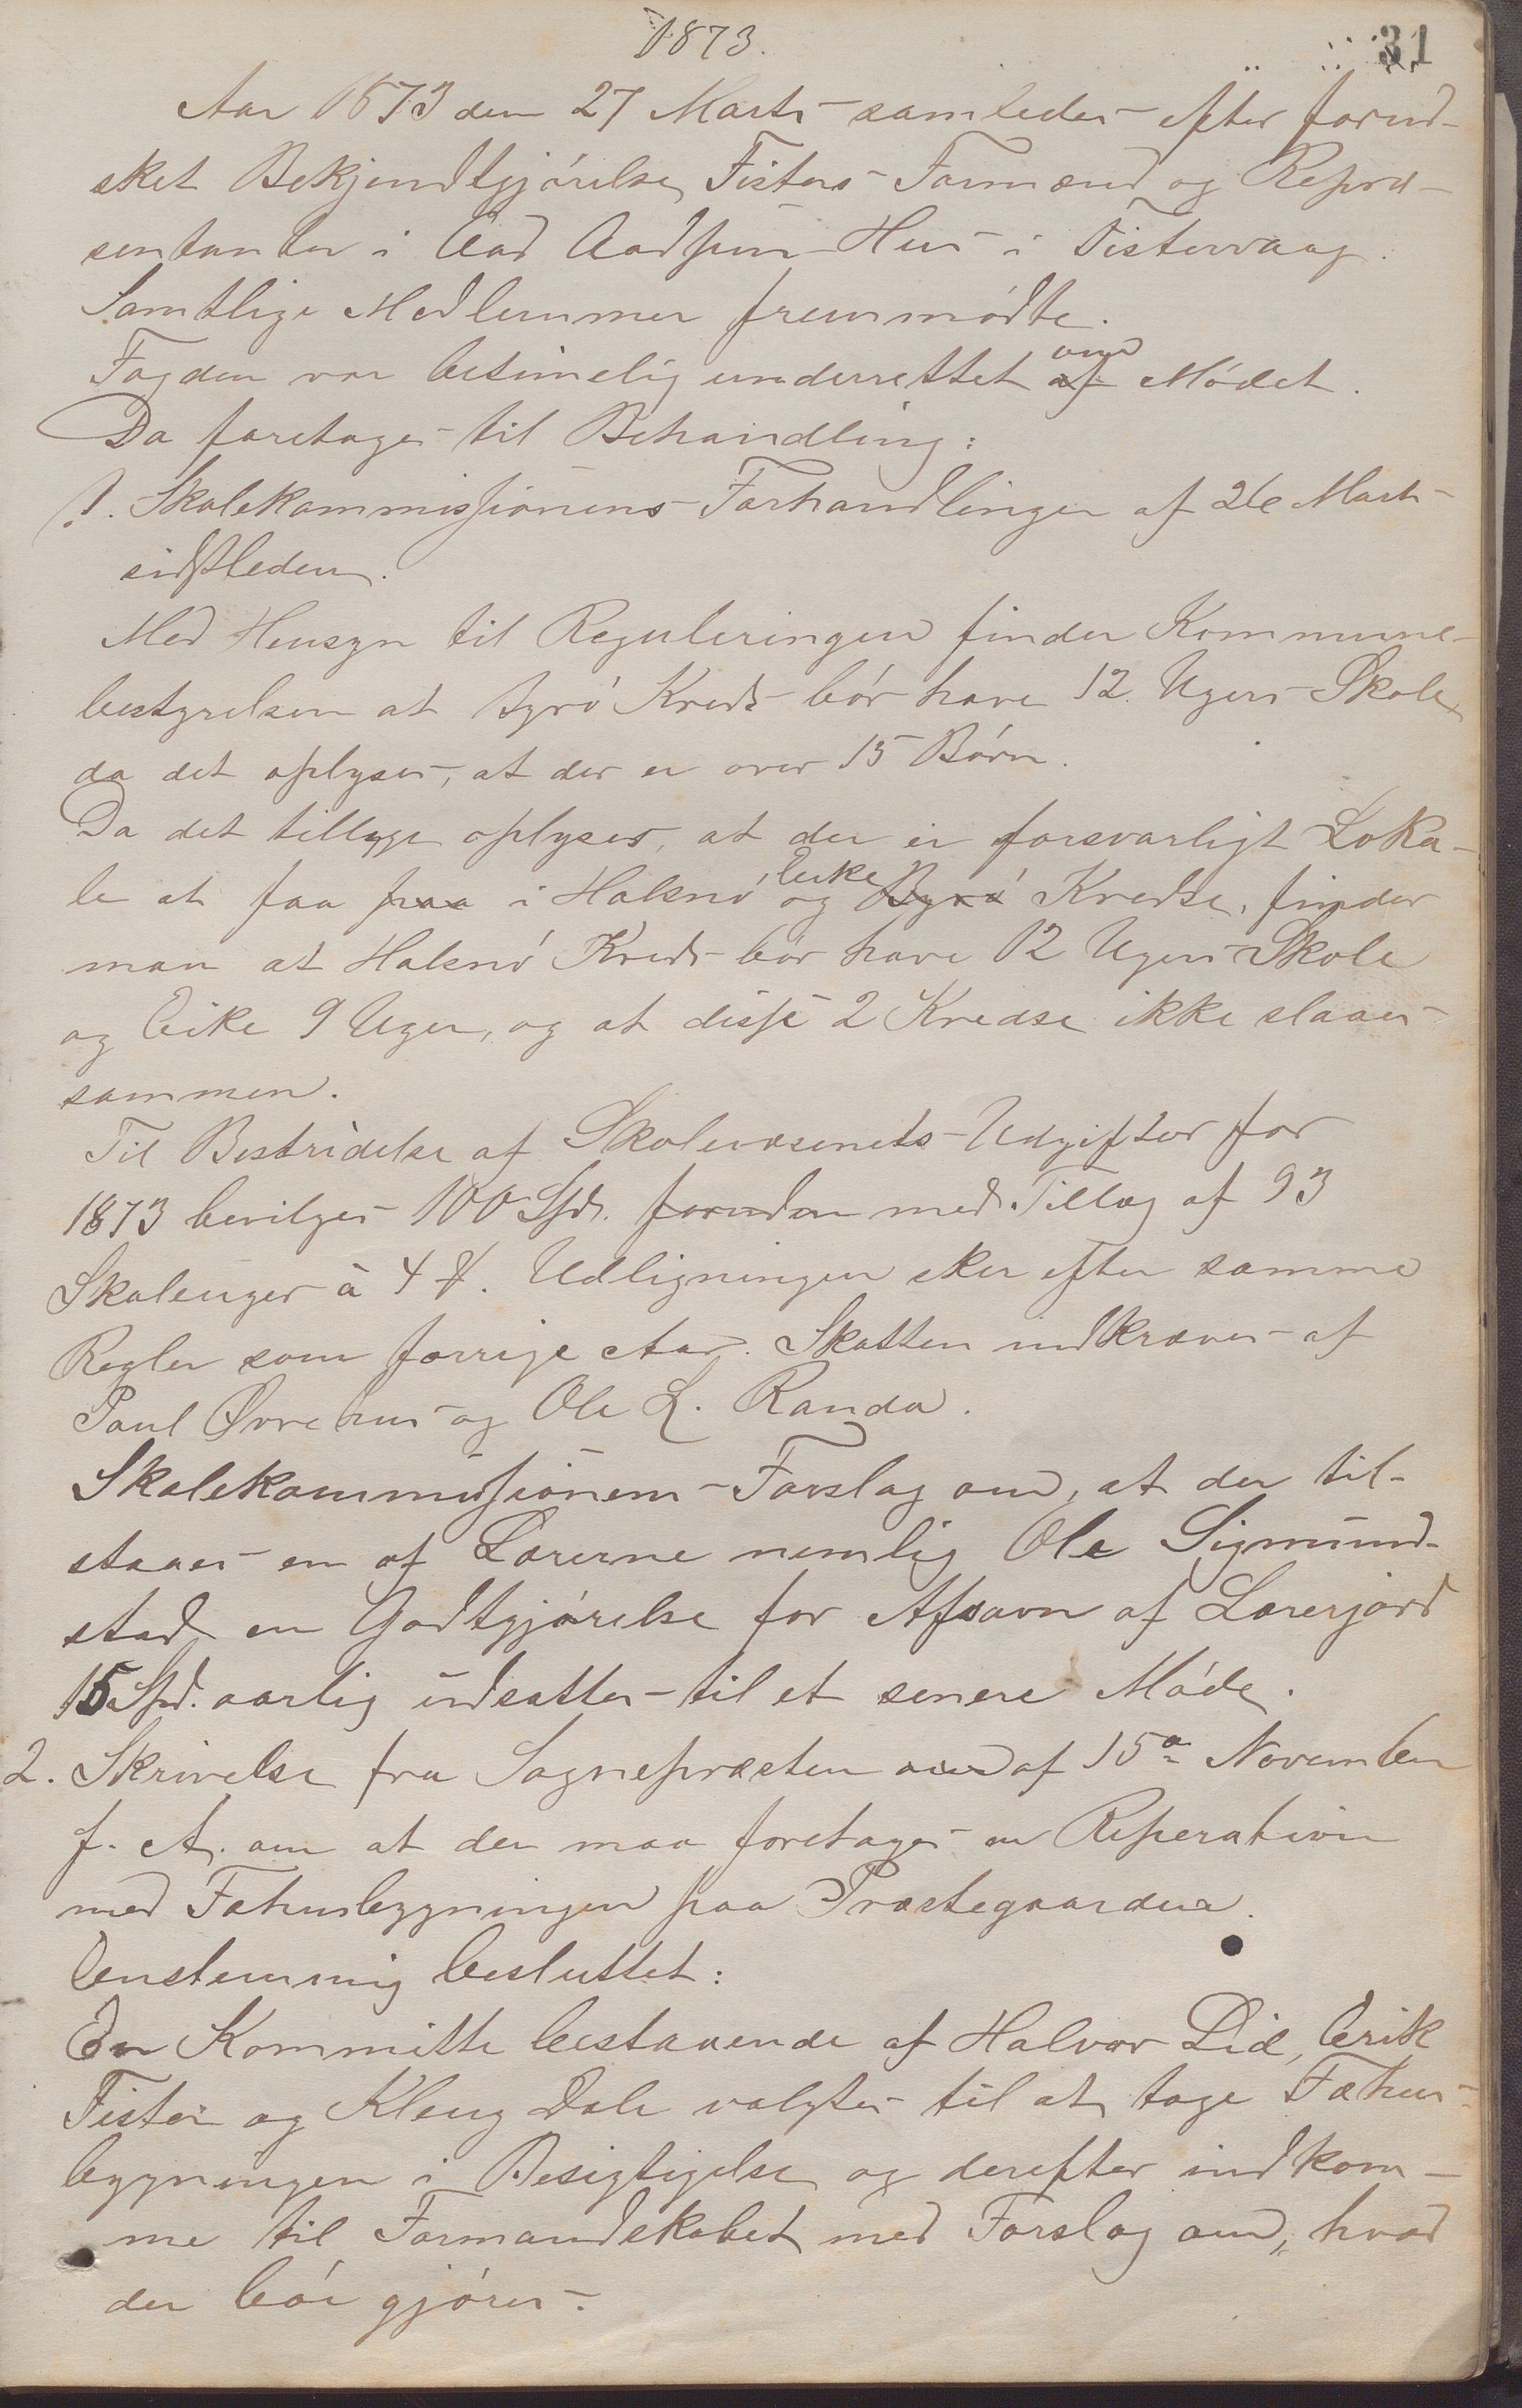 1873.
31
Aar 1873 den 27 Marts samledes efter forud-
sket Bekjendtgjörelse Fisters Formænd og Repræ-
sentanter i Aad Aadsens Hus i Fistervaag.
Samtlige Medlemmer fremmödte.
Fogden var betimelig underrettet af om Mödet.
Da foretages til Behandling:
1. Skolekommissionens Forhandlinger af 26 Marts
sidstleden.
Med Hensyn til Reguleringen finder Kommune-
bestyrelsen at Byrö Kreds bör have 12 Ugers Skole,
da det oplyses, at der er over 15 Börn.
Da det tillige oplyses, at der er forsvarligt Loka-
le at faa paa i Halsnö og Byrö Eike Kredse, finder
man at Halsnö Kreds bör have 12 Ugers Skole
og Eike 9 Uger, og at disse 2 Kredse ikke slaaes
sammen.
Til Bestridelse af Skolevæsenets Udgifter for
1873 bevilges 100 Spd. foruden med Tillæg af 93
Skolenger à 4 ß. Udligningen sker efter samme
Regler som forrige Aar. Skatten indkræves af
Paul Övrehus og Ole L. Randa.
Skolekommissionens Forslag om, at der til-
staaes en af Lærerne nemlig Ole Sigmund-
stad en Godtgjörelse for Afsavn af Lærerjord
15 Spd. aarlig udsættes til et senere Möde.
2. Skrivelse fra Sognepræsten om af 15de November
f. A. om at der maa foretages en Reperation
med Fæhusbygningen paa Præstegaarden.
Eenstemmig besluttet:
En Kommitte bestaaende af Halvor Lid, Erik
Fister og Kleng Dale valgtes til at tage Fæhus-
bygningen i Besigtigelse og derefter indkom-
me til Formandskabet med Forslag om, hvad
der bör gjöres.